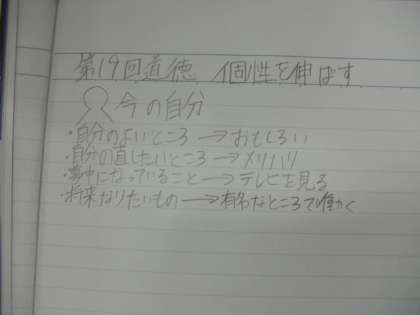 第19回道徳 個性を伸ばす
今の自分
・自分のよいところ→おもしろい
・自分の直したいところ→メリハリ
・夢中になっていること→テレビを見る
・将来なりたいもの→有名なところで働く